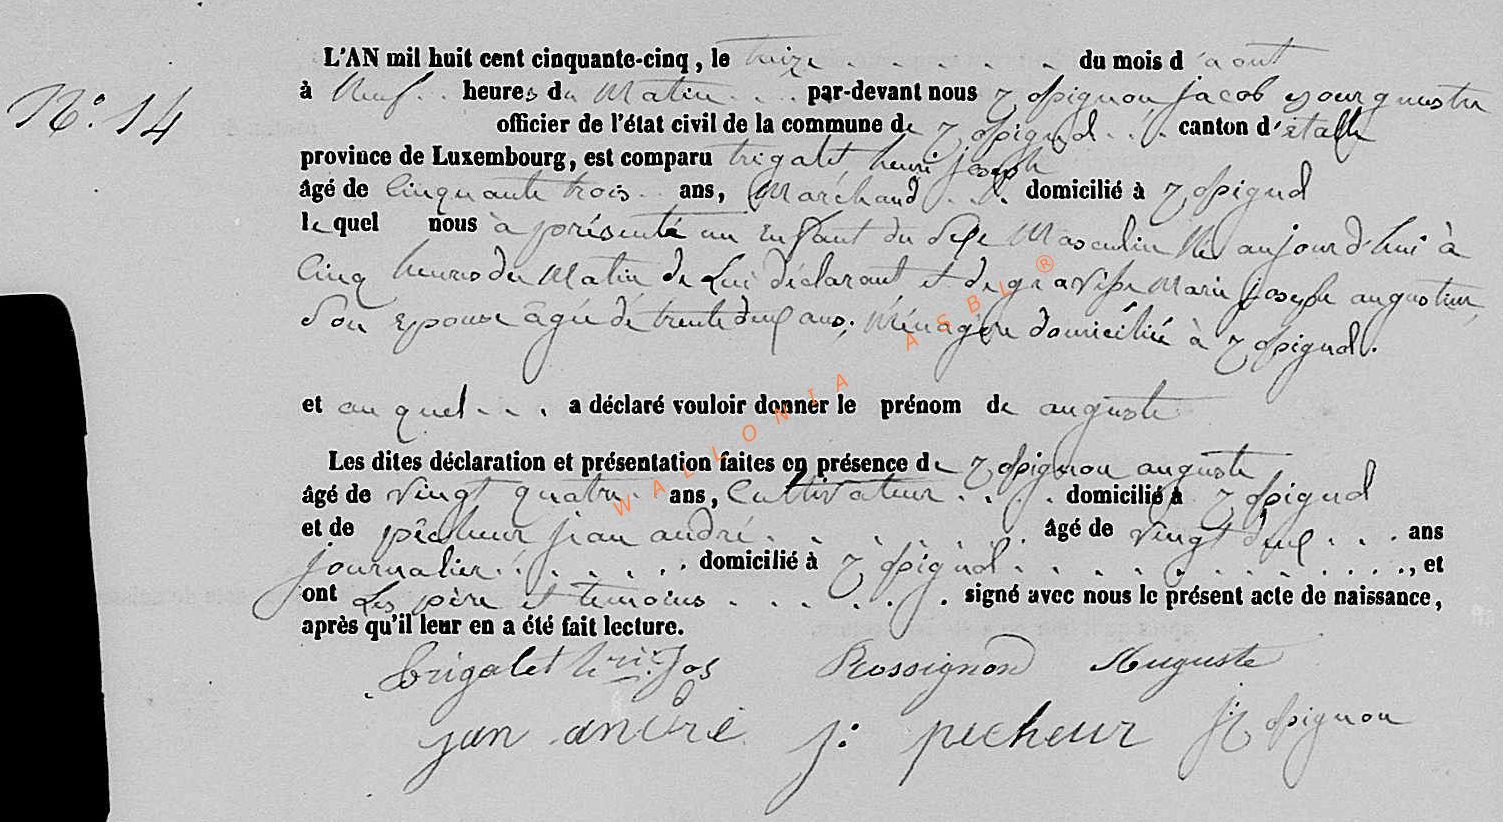 L'AN mil huit cent cinquante-cinq, le treize . . . . . du mois d'aout
N.° 14
à Neuf . . heures du Matin . . . par-devant nous Rossignon jacob bourguestre
officier de l'état civil de la commune de Rossignol . . . canton d'étalle
province de Luxembourg, est comparu trigalet henri joseph
âgé de Cinquante trois . ans, Marchand . . . domicilié à Rossignol
lequel nous à présenté un Enfant du Sexe Masculin Né aujourd'hui à
Cinq heures du Matin de Lui déclarant et de Marie joseph augustine
Son Epouse agée de trente deux ans, Ménagère domiciliée à Rossignol.
et auquel . . . a déclaré vouloir donner le prénom de auguste
Les dites déclaration et présentation faites en présence de Rossignon auguste
âgé de vingt quatre . ans, Cultivateur . . . . domicilié à Rossignol
et de pêcheur jean andré . . . . . . . âgé de vingt deux . . . ans
journalier . . . . . . domicilié à Rossignol . . . . . . . . . . . . , et
ont Les père et temoins . . . . . . signé avec nous le présent acte de naissance,
après qu'il leur en a été fait lecture.
trigalet hri Jos Rossignon Auguste
jan andré j: pecheur J: Rossignon
WALLONIA ASBL ®